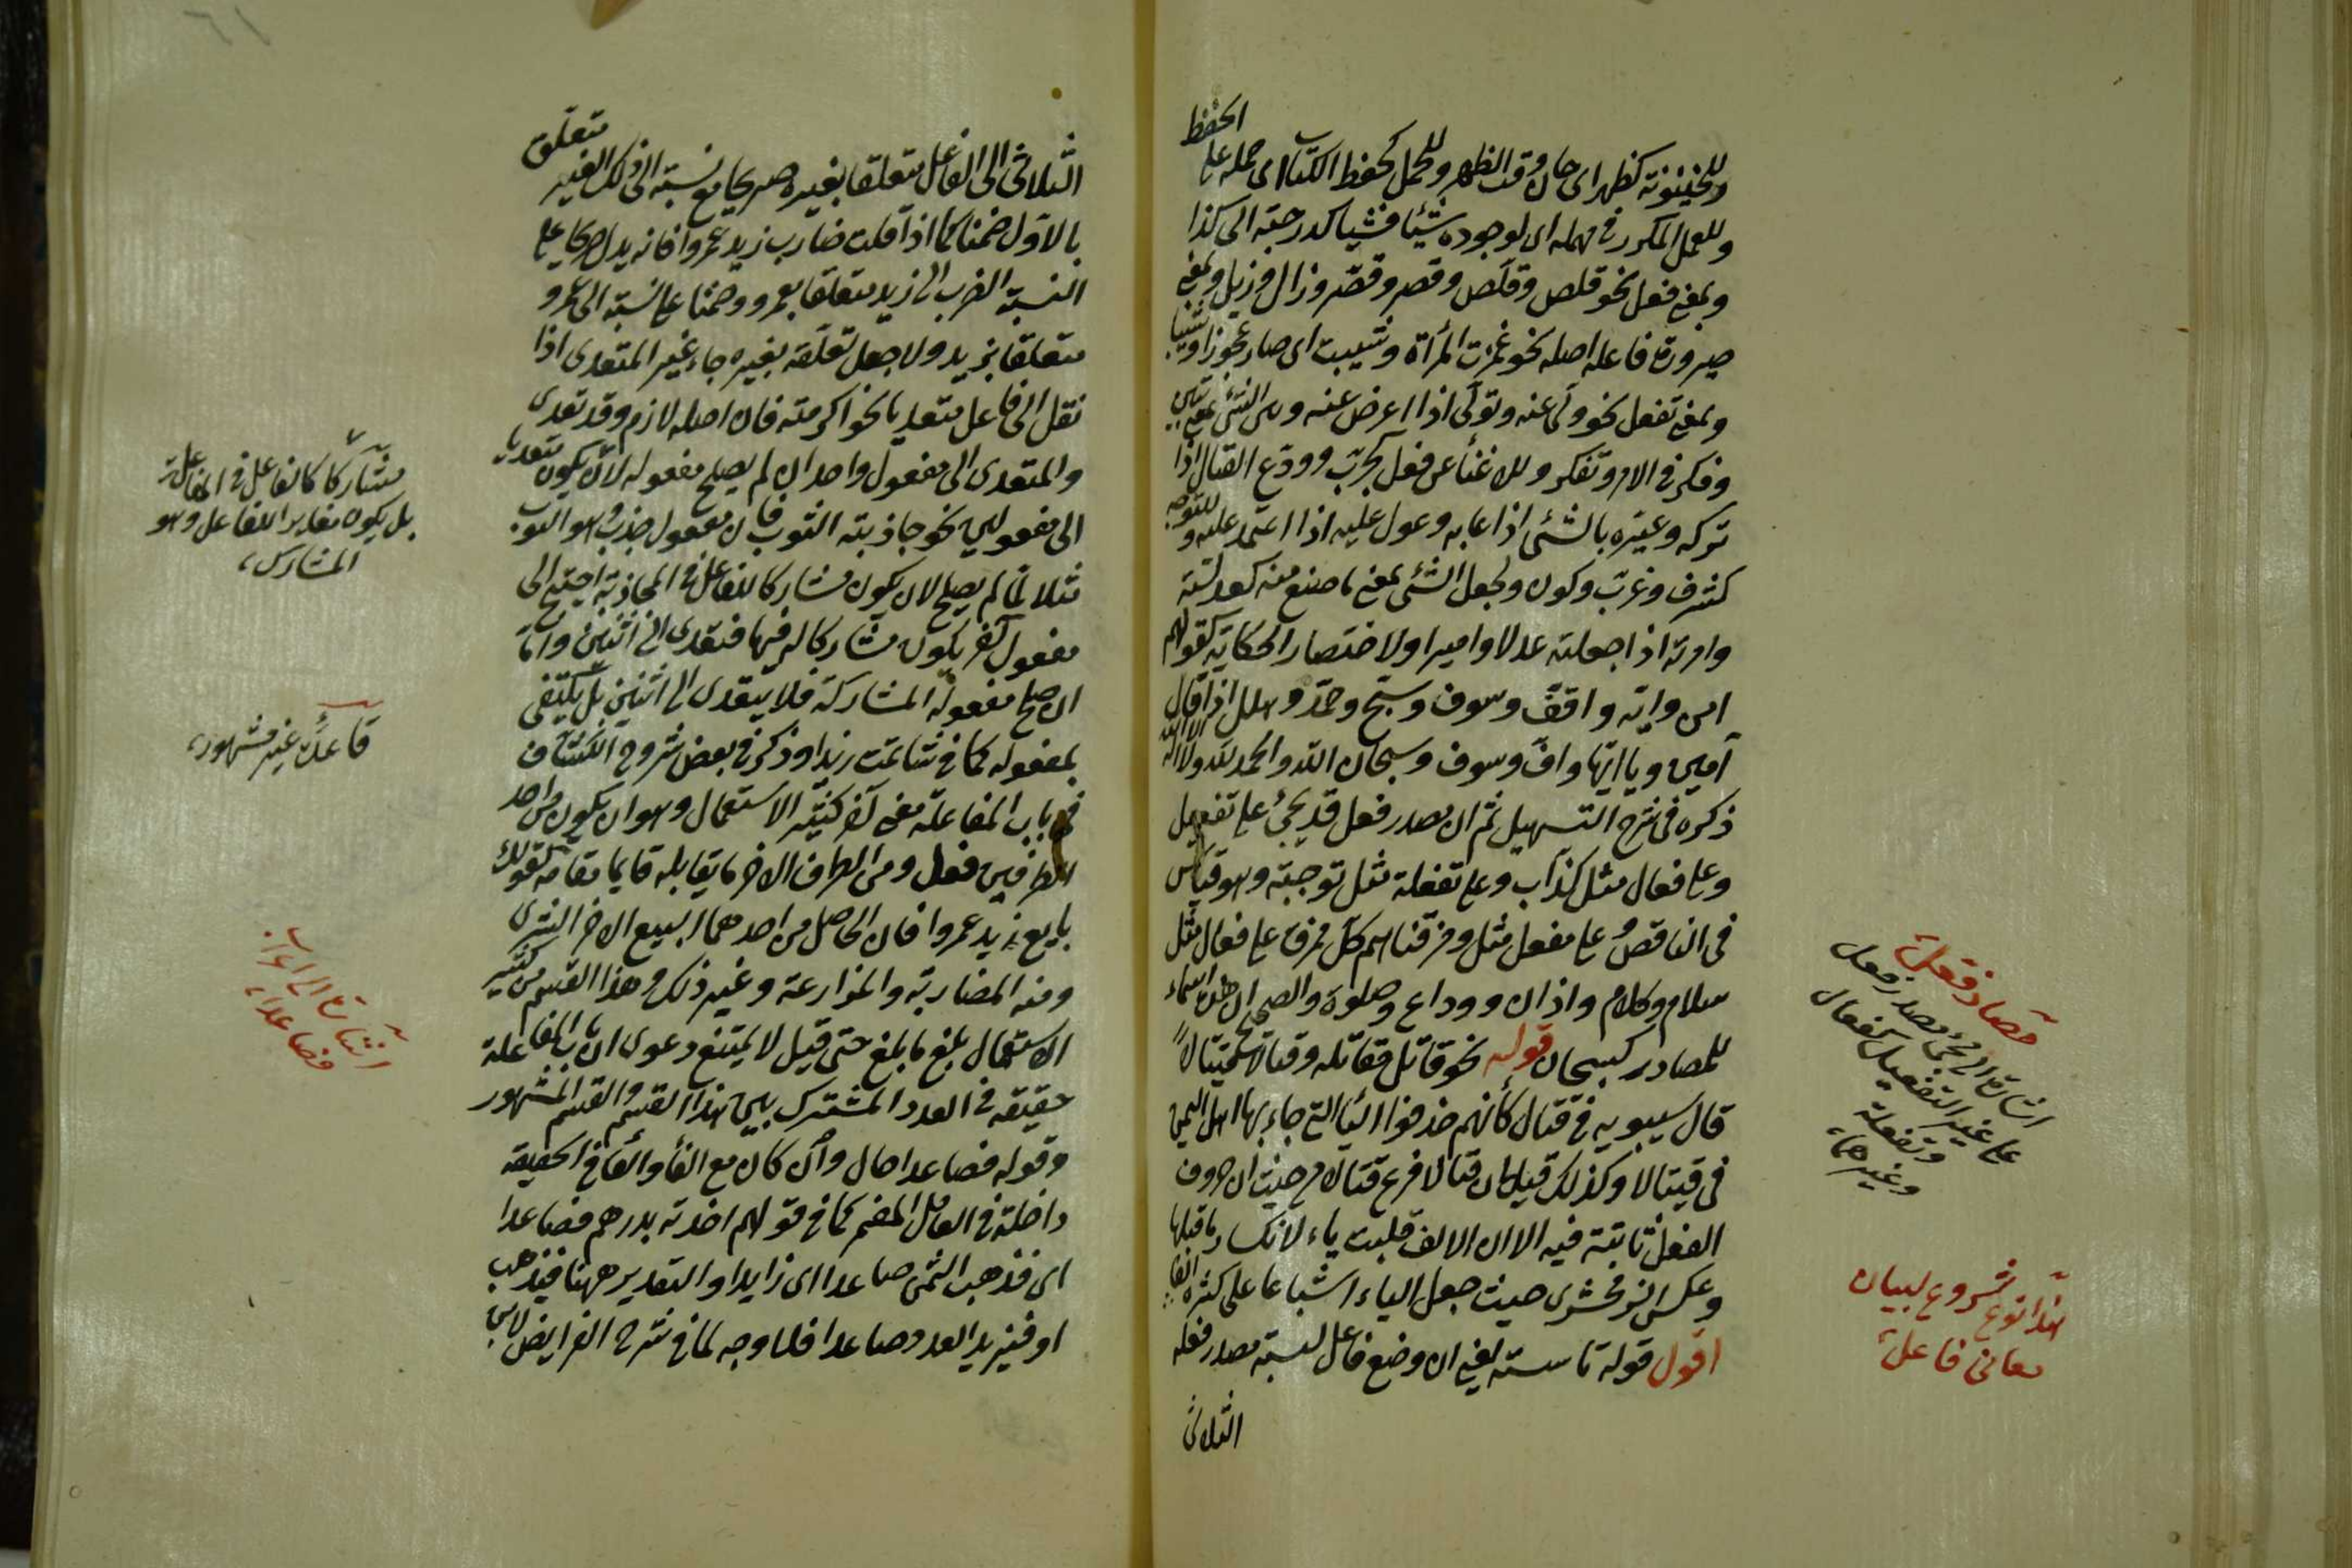 وللحينونة كظهر اى حان وقت الظهر وللحمل كحفظ الكتاب اى حمله على
الحفظ
وللعمل المكرر فى مهلة اى لوجوده شيئا فشيا كدرجته الى كذا
وبمعنى فعل نحو قلص وقلّص وقصر وقصّر وزال وزيل وبمعنى
صيرورة فاعله اصله نحو عجزت المرأة وثيبت اى صار عجوزا وثيبا
وبمعنى تفعل نحو ولّى عنه وتولّى اذا اعرض عنه
وفكر فى الامر وتفكر وللاغناء عن فعل كجرّب وودّع القتال اذا
تركه وعيّره بالشئ اذا عابه وعول عليه اذا اعتمد عليه وللتوجه
كشرف وغرّب وكوف ولجعل الشئ بمعنى ما صنع منه كعدلته
وامرته اذا جعلته عدلا واميرا ولاختصار الحكاية كقولهم
امن وايّه وافف وسوف وسبّح وحمّد وهلل اذا قال
آمين ويا ايها واف وسوف وسبحان الله والحمد لله ولا اله الا الله
ذكره فى شرح التسهيل ثم ان مصدر فعل قد يجئ على تفعيل
وعلى فعال مثل كذاب وعلى تفعلة مثل توجبة وهو قياس
فى الناقص وعلى مفعل مثل ومزقناهم كل ممزق على فعال مثل
سلام وكلام واذان ووداع وصلوة والصحيح ان هذه اسماء
للمصادر كسبحان قوله نحو قاتل مقاتلة وقتالا قيتالا
قال سيبويه فى قتال كأنهم حذفوا اليا التى جاء بها اهل اليمن
فى قيتالا وكذلك قيل ان قتالا فرع قيتالا من حيث ان حروف
الفعل ثابتة فيه الا ان الالف قلبت ياء لانكسار ما قبلها
وعكس الزمخشرى حيث جعل الياء اشباعا على كثرة الفا
اقول قوله تأسسته يعنى ان وضع فاعل لنسبة مصدر فعله
الثلاثى
مصادر فعل
اشارة الى مجئ مصدر فعل
على غير التفعيل كفعال
وتفعلة
وغيرهما
هذا نوع شروع لبيان
معانى فاعل
الثلاثى الى الفاعل متعلقا بغيره صريحا مع نسبته الى ذلك الغير متعلق
بالاول ضمنا كما اذا قلت ضارب زيد عمروا فانه يدل صريحا على
النسبة الضرب الى زيد متعلقا بعمرو وضمنا على نسبته الى عمرو
متعلقا بزيد ولاجعل تعلقه بغيره جاء غير المتعدى اذا
نقل الى فاعل متعديا نحو اكرمته فان اصله لازم وقد تعدى
والمتعدى الى مفعول واحد ان لم يصلح مفعوله لان يكون متعديا
الى مفعولين نحو جاذبته الثوب فان مفعول جذب وهو الثوب
مثلا لما لم يصلح لان يكون مشاركا للفاعل فى المجاذبة احتيج الى
مفعول آخر يكون مشاركا له فيها فتعدى الى اثنين واما
ان صلح مفعوله المشاركة فلا يتعدى الى اثنين بل يكتفى
بمفعوله كما فى شاتمت زيدا وذكر فى بعض شروح الكشاف
فى باب المفاعلة معنى آخر كثير الاستعمال وهو ان يكون من احد
الطرفين فعل ومن الطرف الاخر ما يقابله قايما مقامه كقولك
بايع زيد عمروا فان الحاصل من احدهما البيع الاخر الشرى
ومنه المضاربة والمزارعة وغير ذلك وهذا القسم من كثير
الاستعمال بلغ ما بلغ حتى قيل لا يمتنع دعوى ان باب المفاعلة
حقيقة فى العدد المشترك بين هذا القسم والقسم المشهور
وقوله فصاعدا حال وان كان مع الفأ والفأ فى الحقيقة
داخلة فى العامل المضمر كما فى قولهم اخذته بدرهم فصاعدا
اى فذهب الثمن صاعدا اى زايدا والتقدير ههنا فيذهب
او فيزيد العدد صاعدا فلا وجه لما فى شرح الفرايض لابن
مشاركا كالفاعل فى المفاعلة
بل يكون مغايرا للفاعل وهو
المشارك
قاعدة غير مشهورة
اشارة الى اعراب
فصاعدا